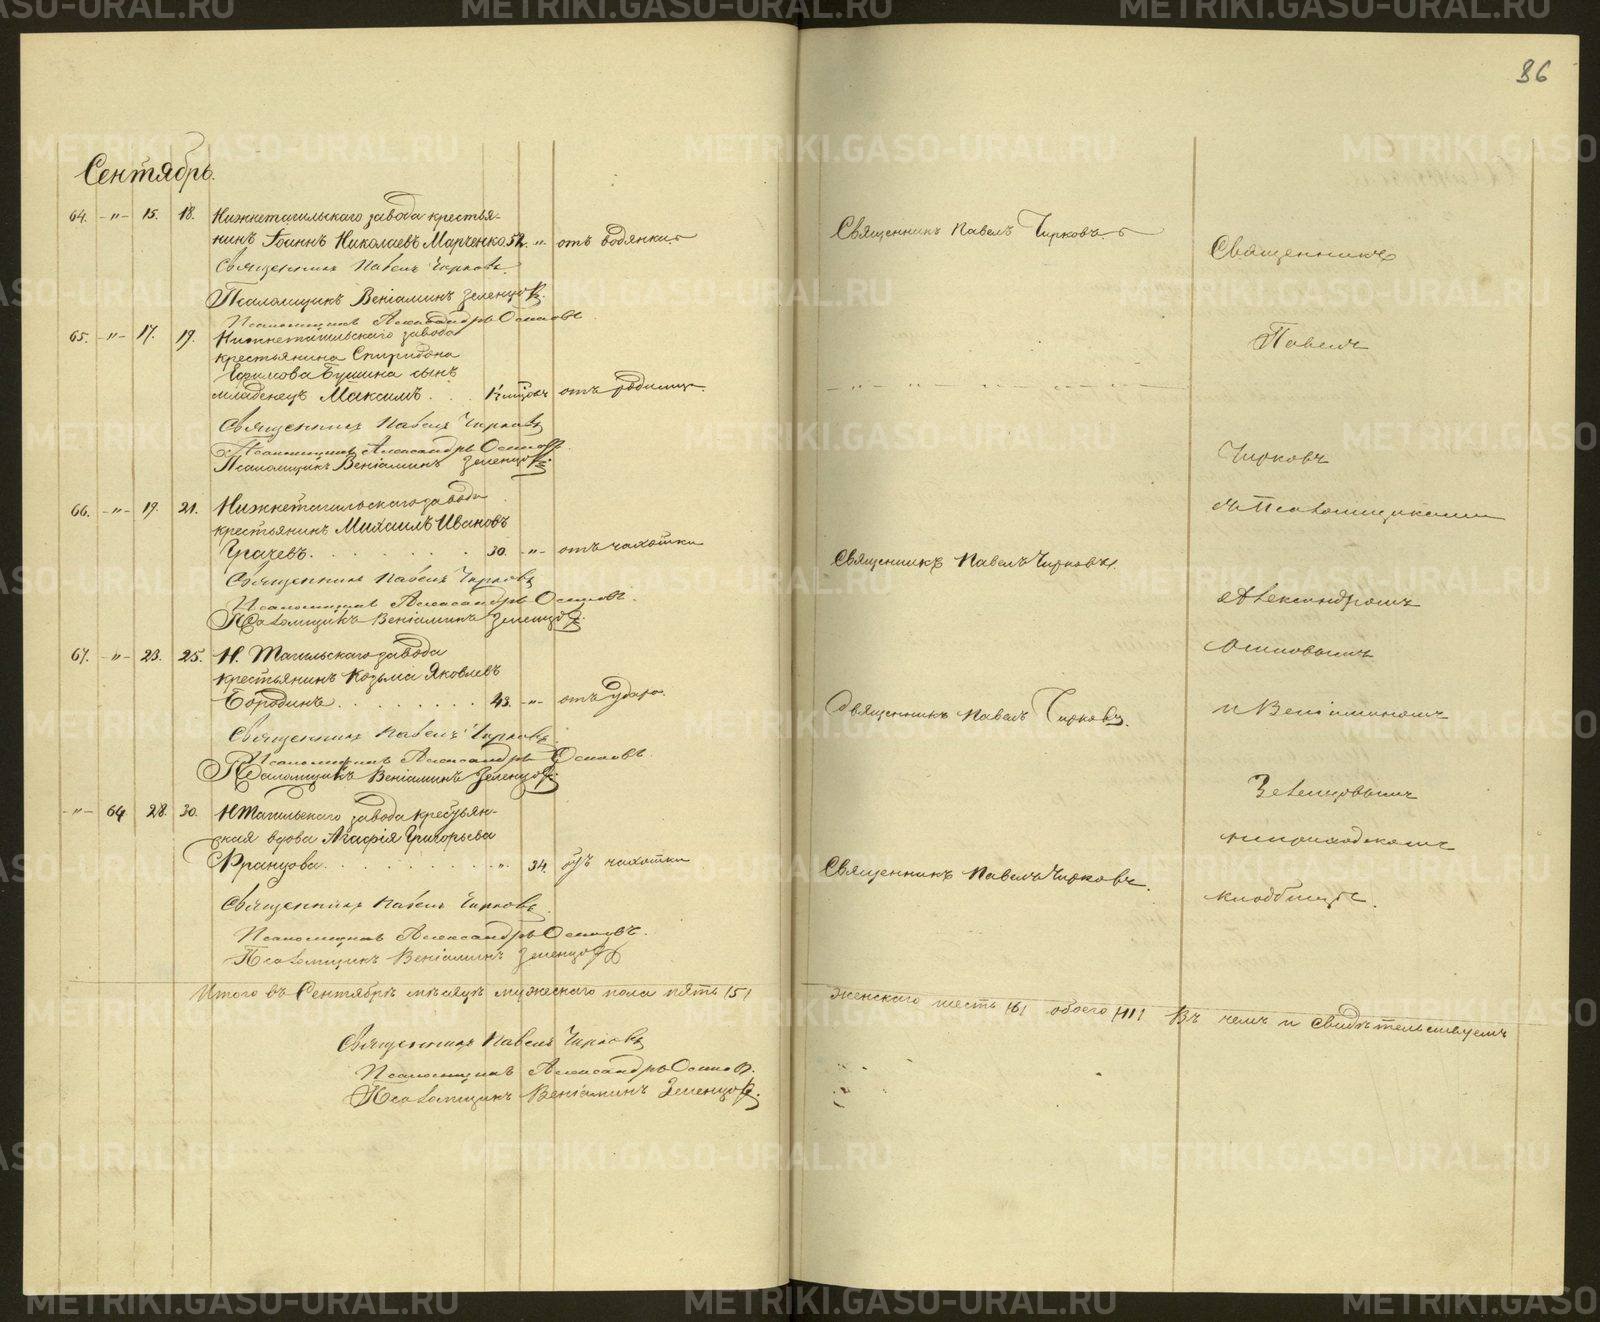 86
Сентябрь.
64. -"- 15. 18. Нижнетагильскаго завода крестья-
нинъ Іоаннъ Николаевъ Марченко 52. " отъ водянки
Священникъ Павелъ Чирковъ.
Псаломщикъ Веніаминъ Зеленцовъ.
Псаломщикъ Александръ Осиповъ
65. -"- 17. 19. Нижнетагильскаго завода
крестьянина Спиридона
Ефимова Бушина сынъ
младенецъ Максимъ . . отъ родимца.
Священникъ Павелъ Чирковъ
Псаломщикъ Александръ Осиповъ
Псаломщикъ Веніаминъ Зеленцовъ.
66. -"- 19. 21. Нижнетагильскаго завода
крестьянинъ Михаилъ Ивановъ
Грачевъ. . . . . . . . 30. -"- отъ чахотки
Священникъ Павелъ Чирковъ
Псаломщикъ Александръ Осиповъ.
Псаломщикъ Веніаминъ Зеленцовъ.
67. -"- 23. 25. Н. Тагильскаго завода
крестьянинъ Козьма Яковлевъ
Бородинъ. . . . . . . . 43. -"- отъ удара
Священникъ Павелъ Чирковъ
Псаломщикъ Александръ Осиповъ.
Псаломщикъ Веніаминъ Зеленцовъ.
-"- 64 28. 30. Н Тагильскаго завода крестьян-
ская вдова Агафія Григорьева
Францова. . . . . . . . " 34. отъ чахотки
Священникъ Павелъ Чирковъ.
Псаломщикъ Александръ Осиповъ.
Псаломщикъ Веніаминъ Зеленцовъ
Итого въ Сентябрѣ мѣсяцѣ мужескаго пола пять /5/
Священникъ Павелъ Чирковъ
Псаломщикъ Александръ Осиповъ.
Псаломщикъ Веніаминъ Зеленцовъ.
Священникъ Павелъ Чирковъ.
Священникъ Павелъ Чирковъ.
Священникъ Павелъ Чирковъ.
Священникъ Павелъ Чирковъ.
Священникъ
Павелъ
Чирковъ
съ Псаломщиками
Александромъ
Осиповымъ
и Веніаминомъ
Зеленцовымъ
на приходскомъ
кладбищѣ.
женскаго шесть /6/ обоего /11/ Въ чемъ и свидѣтельствуемъ
METRIKI.GASO-URAL.RU